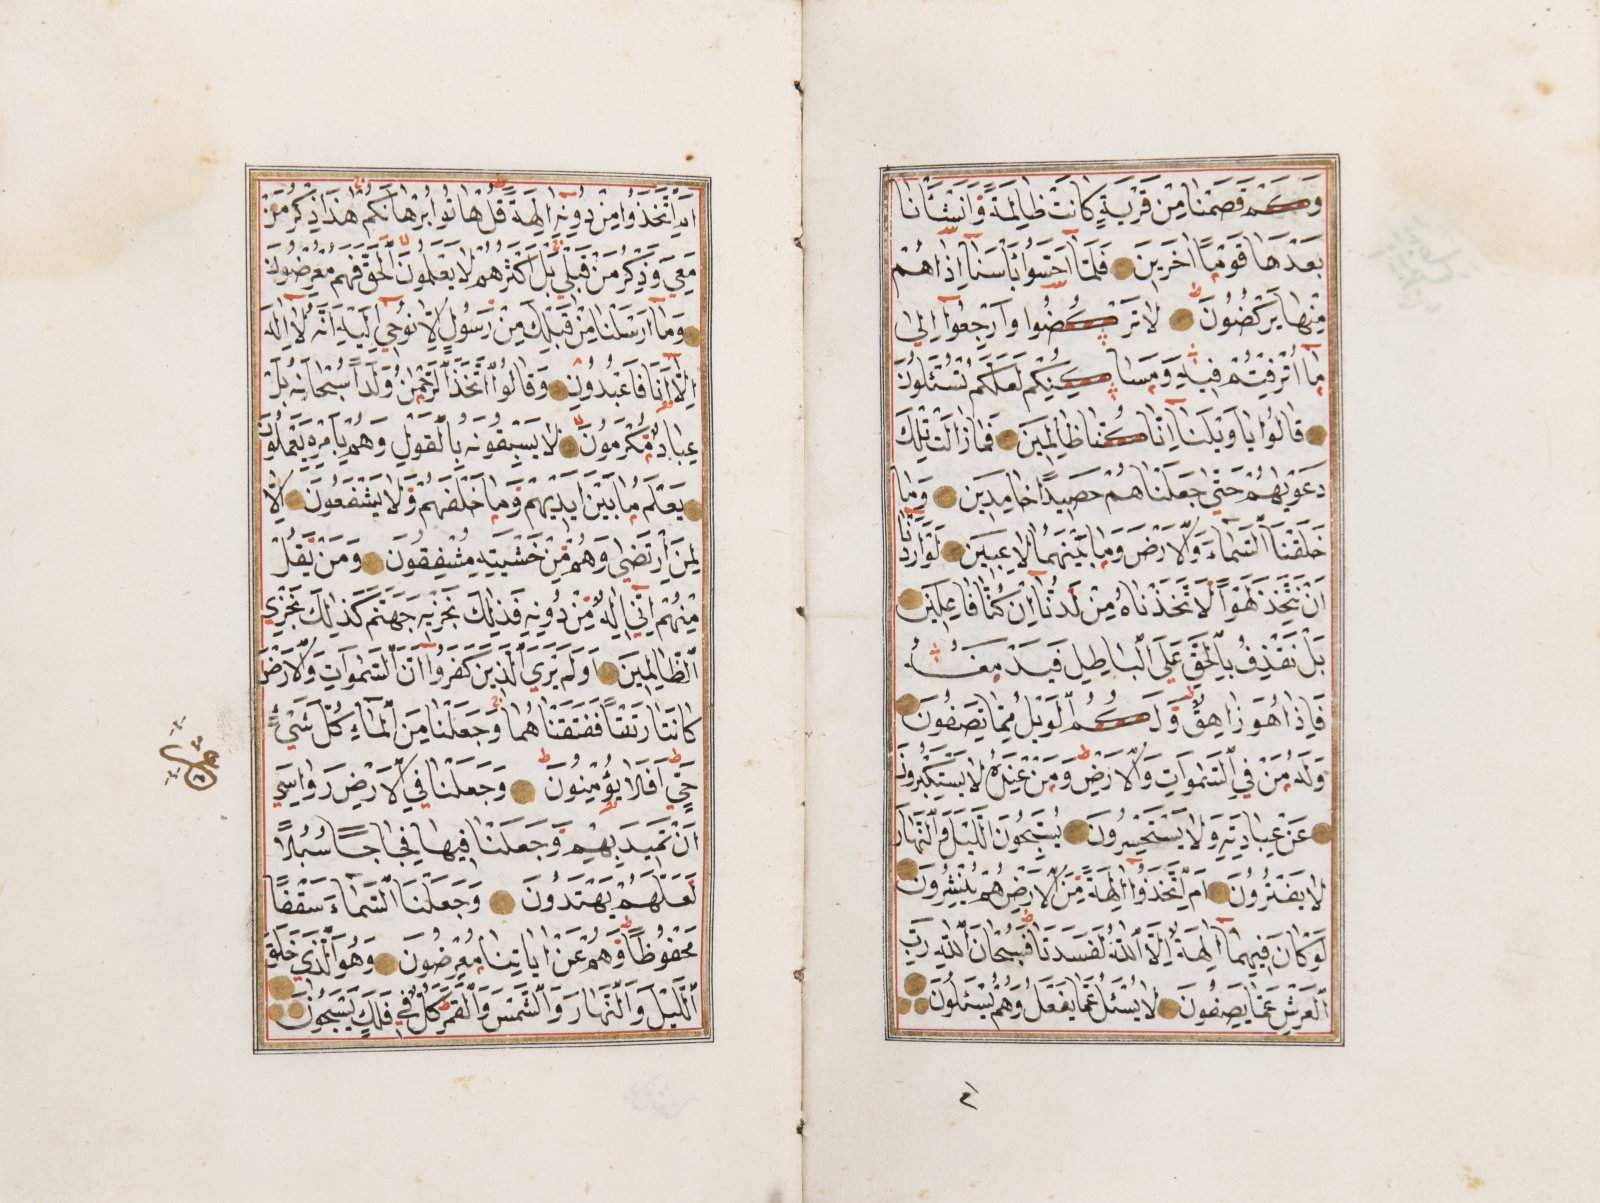 وَكَمْ قَصَمْنَا مِنْ قَرْيَةٍ كَانَتْ ظَالِمَةً وَاَنْشَاْنَا
بَعْدَهَا قَوْمًا اٰخَرِينَ فَلَمَّا اَحَسُّوا بَاْسَنَا اِذَا هُمْ
مِنْهَا يَرْكُضُونَ لَا تَرْكُضُوا وَارْجِعُوا اِلٰى
مَا اُتْرِفْتُمْ فِيهِ وَمَسَاكِنِكُمْ لَعَلَّكُمْ تُسْـَٔلُونَ
قَالُوا يَا وَيْلَنَا اِنَّا كُنَّا ظَالِمِينَ فَمَا زَالَتْ تِلْكَ
دَعْوٰيهُمْ حَتّٰى جَعَلْنَاهُمْ حَصِيدًا خَامِدِينَ وَمَا
خَلَقْنَا السَّمَاءَ وَالْاَرْضَ وَمَا بَيْنَهُمَا لَاعِبِينَ لَوْ اَرَدْنَا
اَنْ نَتَّخِذَ لَهْوًا لَاتَّخَذْنَاهُ مِنْ لَدُنَّا اِنْ كُنَّا فَاعِلِينَ
بَلْ نَقْذِفُ بِالْحَقِّ عَلَى الْبَاطِلِ فَيَدْمَغُهُ
فَاِذَا هُوَ زَاهِقٌ وَلَكُمُ الْوَيْلُ مِمَّا تَصِفُونَ
وَلَهُ مَنْ فِي السَّمٰوَاتِ وَالْاَرْضِ وَمَنْ عِنْدَهُ لَا يَسْتَكْبِرُونَ
عَنْ عِبَادَتِهِ وَلَا يَسْتَحْسِرُونَ يُسَبِّحُونَ الَّيْلَ وَالنَّهَارَ
لَا يَفْتُرُونَ اَمِ اتَّخَذُوا اٰلِهَةً مِنَ الْاَرْضِ هُمْ يُنْشِرُونَ
لَوْ كَانَ فِيهِمَا اٰلِهَةٌ اِلَّا اللّٰهُ لَفَسَدَتَا فَسُبْحَانَ اللّٰهِ رَبِّ
الْعَرْشِ عَمَّا يَصِفُونَ لَا يُسْـَٔلُ عَمَّا يَفْعَلُ وَهُمْ يُسْـَٔلُونَ
اَمِ اتَّخَذُوا مِنْ دُونِهِ اٰلِهَةً قُلْ هَاتُوا بُرْهَانَكُمْ هٰذَا ذِكْرُ مَنْ
مَعِيَ وَذِكْرُ مَنْ قَبْلِي بَلْ اَكْثَرُهُمْ لَا يَعْلَمُونَ الْحَقَّ فَهُمْ مُعْرِضُونَ
وَمَا اَرْسَلْنَا مِنْ قَبْلِكَ مِنْ رَسُولٍ اِلَّا نُوحِي اِلَيْهِ اَنَّهُ لَا اِلٰهَ
اِلَّا اَنَا فَاعْبُدُونِ وَقَالُوا اتَّخَذَ الرَّحْمٰنُ وَلَدًا سُبْحَانَهُ بَلْ
عِبَادٌ مُكْرَمُونَ لَا يَسْبِقُونَهُ بِالْقَوْلِ وَهُمْ بِاَمْرِهِ يَعْمَلُونَ
يَعْلَمُ مَا بَيْنَ اَيْدِيهِمْ وَمَا خَلْفَهُمْ وَلَا يَشْفَعُونَ اِلَّا
لِمَنِ ارْتَضٰى وَهُمْ مِنْ خَشْيَتِهِ مُشْفِقُونَ وَمَنْ يَقُلْ
مِنْهُمْ اِنِّي اِلٰهٌ مِنْ دُونِهِ فَذٰلِكَ نَجْزِيهِ جَهَنَّمَ كَذٰلِكَ نَجْزِي
الظَّالِمِينَ اَوَلَمْ يَرَ الَّذِينَ كَفَرُوا اَنَّ السَّمٰوَاتِ وَالْاَرْضَ
كَانَتَا رَتْقًا فَفَتَقْنَاهُمَا وَجَعَلْنَا مِنَ الْمَاءِ كُلَّ شَيْءٍ
حَيٍّ اَفَلَا يُؤْمِنُونَ وَجَعَلْنَا فِي الْاَرْضِ رَوَاسِيَ
اَنْ تَمِيدَ بِهِمْ وَجَعَلْنَا فِيهَا فِجَاجًا سُبُلًا
لَعَلَّهُمْ يَهْتَدُونَ وَجَعَلْنَا السَّمَاءَ سَقْفًا
مَحْفُوظًا وَهُمْ عَنْ اٰيَاتِنَا مُعْرِضُونَ وَهُوَ الَّذِي خَلَقَ
الَّيْلَ وَالنَّهَارَ وَالشَّمْسَ وَالْقَمَرَ كُلٌّ فِي فَلَكٍ يَسْبَحُونَ